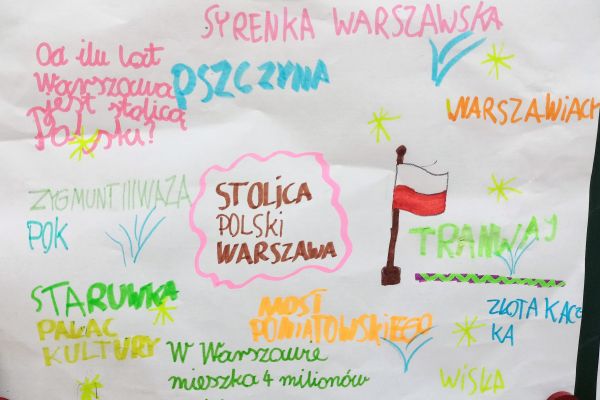 SYRENKA WARSZAWSKA
Od ilu lat
Warszawa
jest stolicą
Polski?
PSZCZYNA
WARSZAWIACY
ZYGMUNT III WAZA
POK
STOLICA
POLSKI
WARSZAWA
TRAMWAJ
STARUWKA
PAŁAC
KULTURY
MOST
PONIATOWSKIEGO
ZŁOTA KACZ
KA
W Warszawie
mieszka 4 milionów
WISŁA